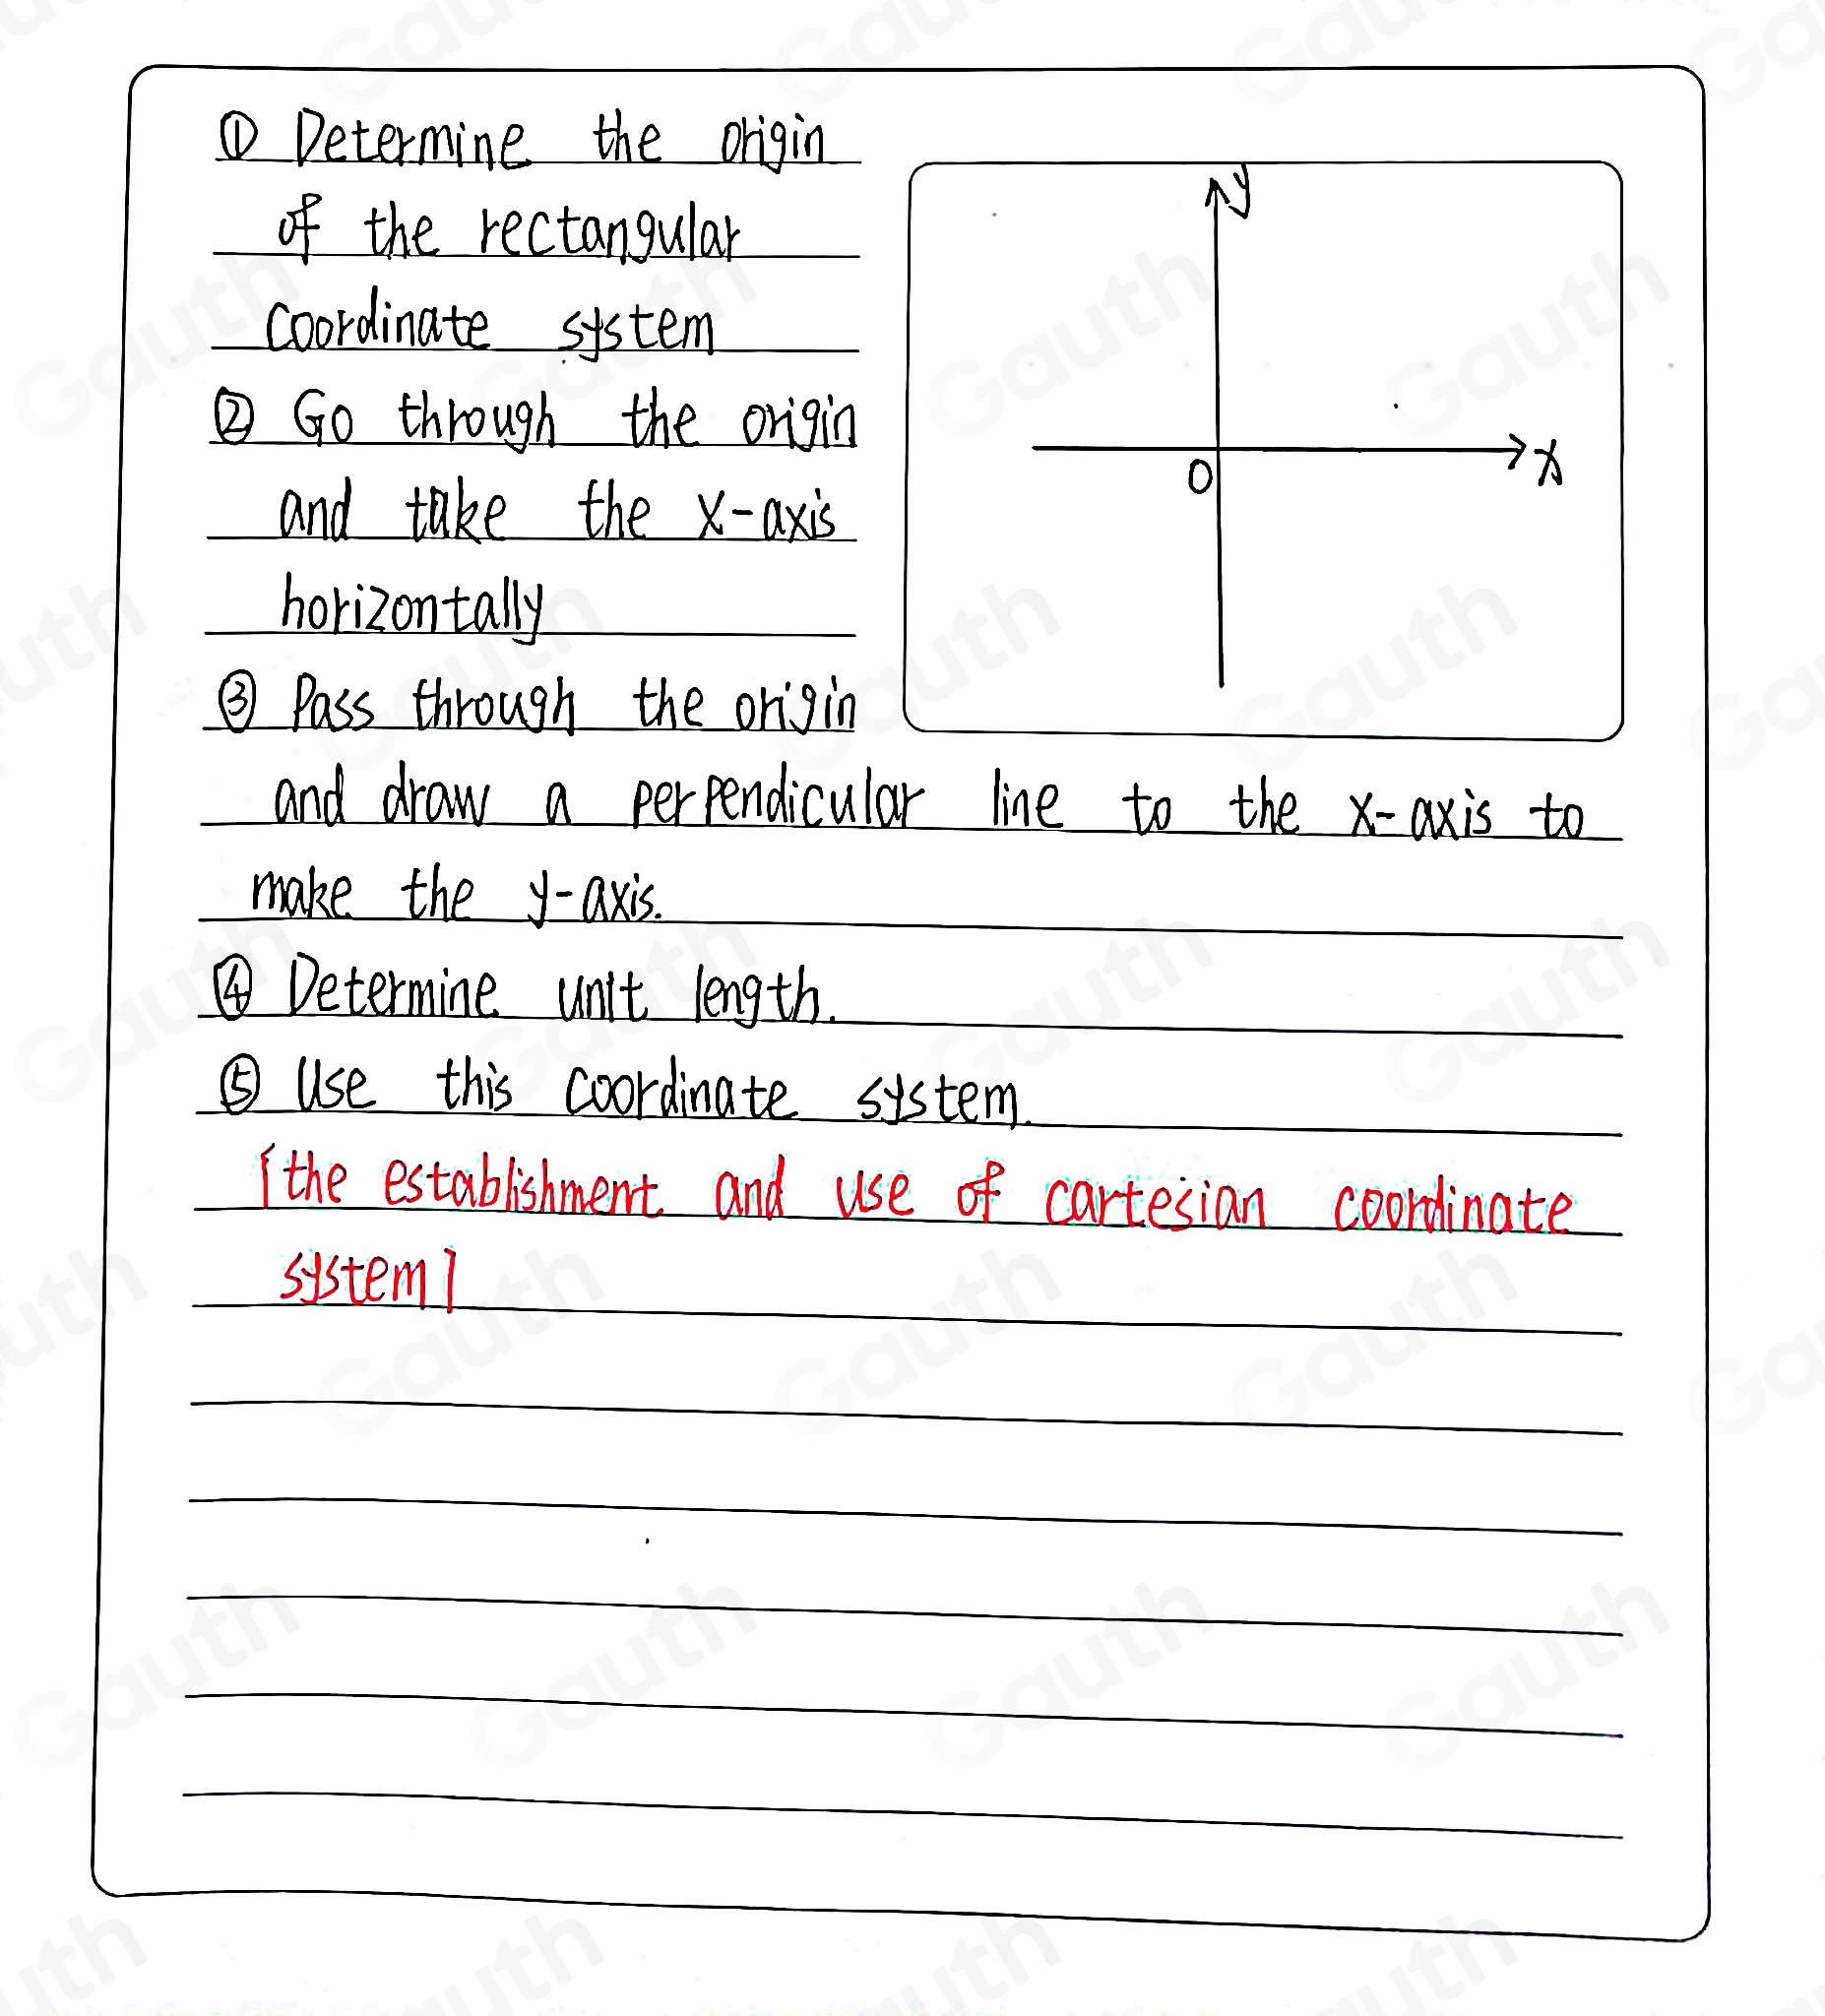 ① Determine the origin
of the rectangular
coordinate system
② Go through the origin
and take the x-axis
horizontally
③ Pass through the origin
and draw a perpendicular line to the x-axis to
make the y-axis.
④ Determine unit length.
⑤ Use this coordinate system.
[the establishment and use of cartesian coordinate
system]
y
x
0